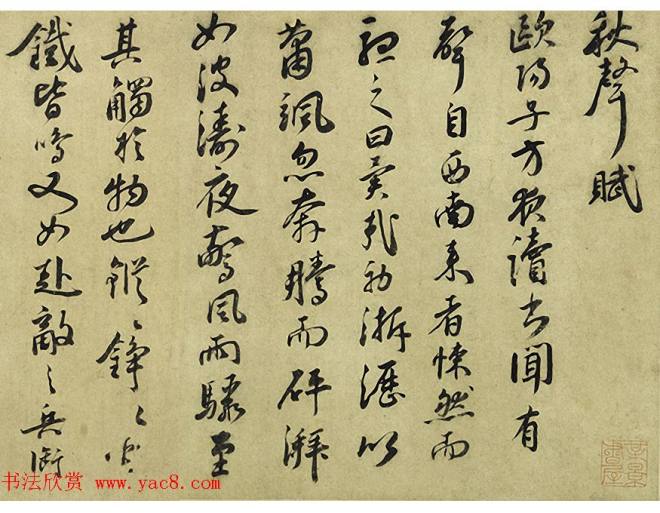 秋聲賦
歐陽子方夜讀書聞有
聲自西南來者悚然而
聽之曰異哉初淅瀝以
蕭颯忽奔騰而砰湃
如波濤夜驚風雨驟至
其觸於物也鏦〻錚〻金
鐵皆鳴又如赴敵之兵銜
书法欣赏 www.yac8.com